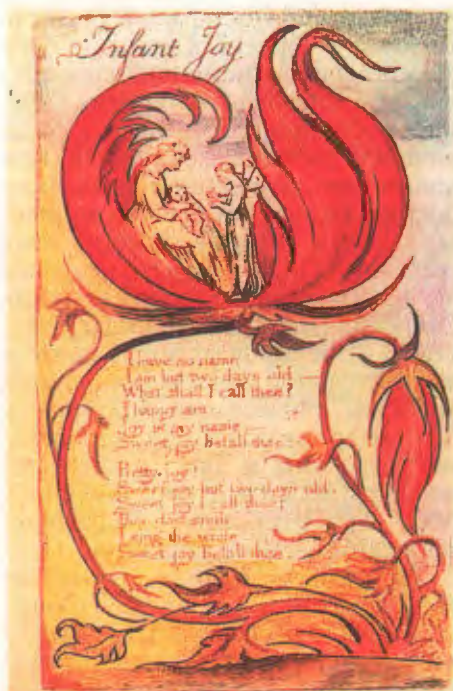 Infant Joy
I have no name
I am but two days old —
What shall I call thee?
I happy am
Joy is my name —
Sweet joy befall thee!
Pretty joy!
Sweet joy but two days old.
Sweet joy I call thee:
Thou dost smile
I sing the while
Sweet joy befall thee.